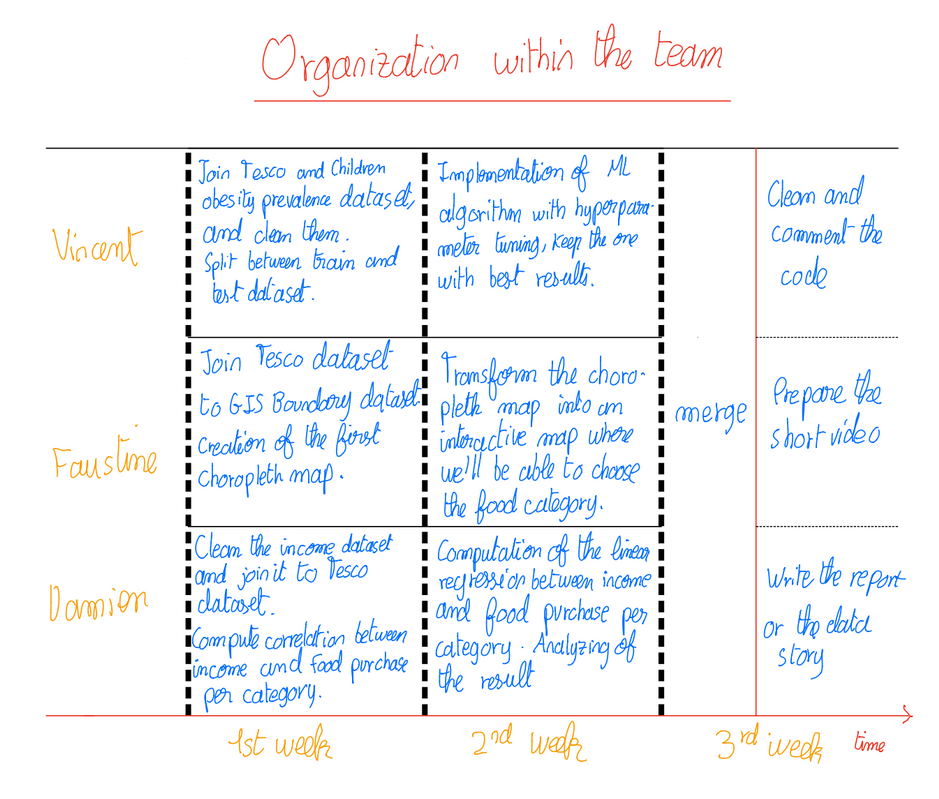 Organization within the team
Vincent
Join Tesco and Children
obesity prevalence dataset,
and clean them.
Split between train and
test dataset.
Implementation of ML
algorithm with hyperpara-
meter tuning, keep the one
with best results.
Clean and
comment the
code
Faustine
Join Tesco dataset
to GIS Boundary dataset
creation of the first
choropleth map.
Transform the choro-
pleth map into an
interactive map where
we'll be able to choose
the food category.
merge
Prepare the
short video
Damien
Clean the income dataset
and join it to Tesco
dataset.
Compute correlation between
income and food purchase
per category.
Computation of the linear
regression between income
and food purchase per
category. Analyzing of
the result
Write the report
or the data
story
1st week
2nd week
3rd week
time